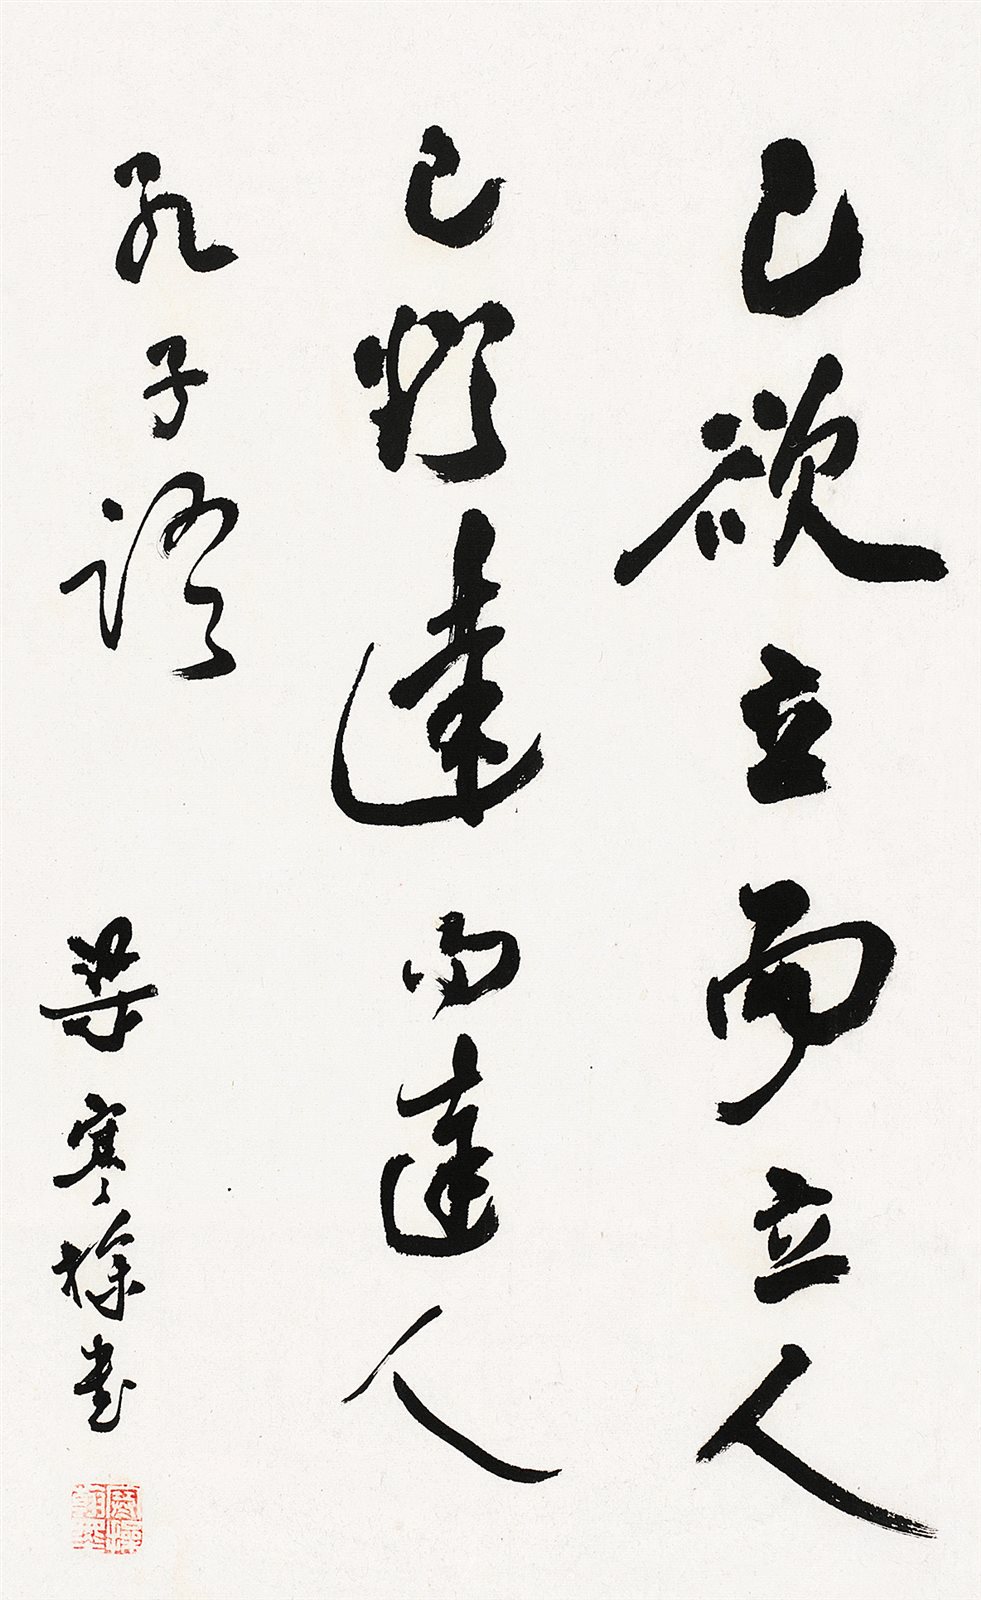 己欲立而立人
己欲達而達人
孔子語
梁寒操書